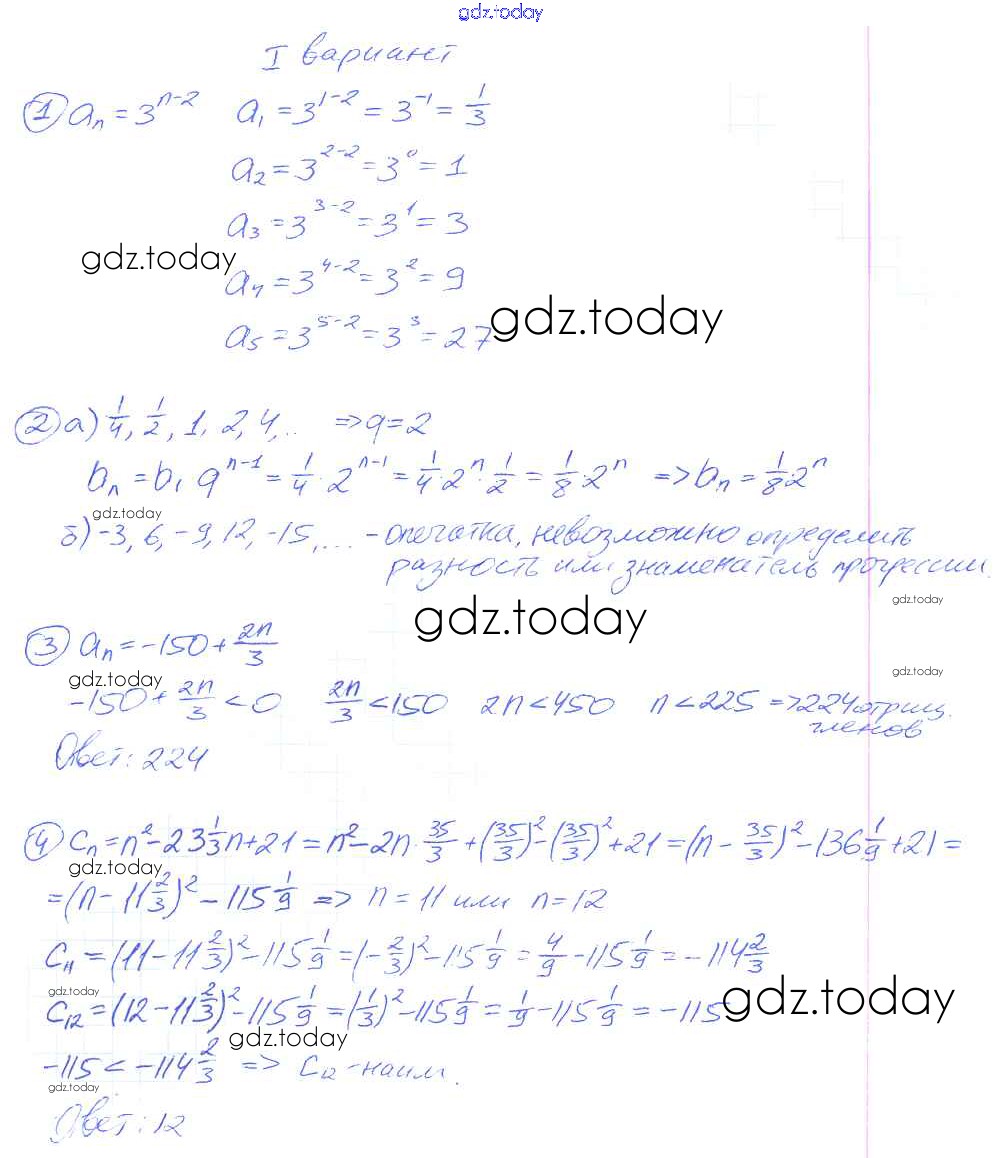 gdz.today
I вариант
① aₙ = 3ⁿ⁻² a₁ = 3¹⁻² = 3⁻¹ = 1/3
a₂ = 3²⁻² = 3⁰ = 1
a₃ = 3³⁻² = 3¹ = 3
gdz.today
a₄ = 3⁴⁻² = 3² = 9
a₅ = 3⁵⁻² = 3³ = 27 gdz.today
② а) 1/4, 1/2, 1, 2, 4, .. => q = 2
bₙ = b₁ qⁿ⁻¹ = 1/4 · 2ⁿ⁻¹ = 1/4 · 2ⁿ · 1/2 = 1/8 · 2ⁿ => bₙ = 1/8 2ⁿ
gdz.today
б) -3, 6, -9, 12, -15, ... - опечатка, невозможно определить
разность или знаменатель прогрессии.
gdz.today
gdz.today
③ aₙ = -150 + 2n/3
gdz.today
gdz.today
-150 + 2n/3 < 0 2n/3 < 150 2n < 450 n < 225 => 224 отриц.
членов
Ответ: 224
④ cₙ = n² - 23 1/3 n + 21 = n² - 2n · 35/3 + (35/3)² - (35/3)² + 21 = (n - 35/3)² - 136 1/9 + 21 =
= (n - 11 2/3)² - 115 1/9 => n = 11 или n = 12
c₁₁ = (11 - 11 2/3)² - 115 1/9 = (- 2/3)² - 115 1/9 = 4/9 - 115 1/9 = - 114 2/3
gdz.today
c₁₂ = (12 - 11 2/3)² - 115 1/9 = (1/3)² - 115 1/9 = 1/9 - 115 1/9 = -115 gdz.today
gdz.today
-115 < -114 2/3 => c₁₂ - наим.
gdz.today
Ответ: 12